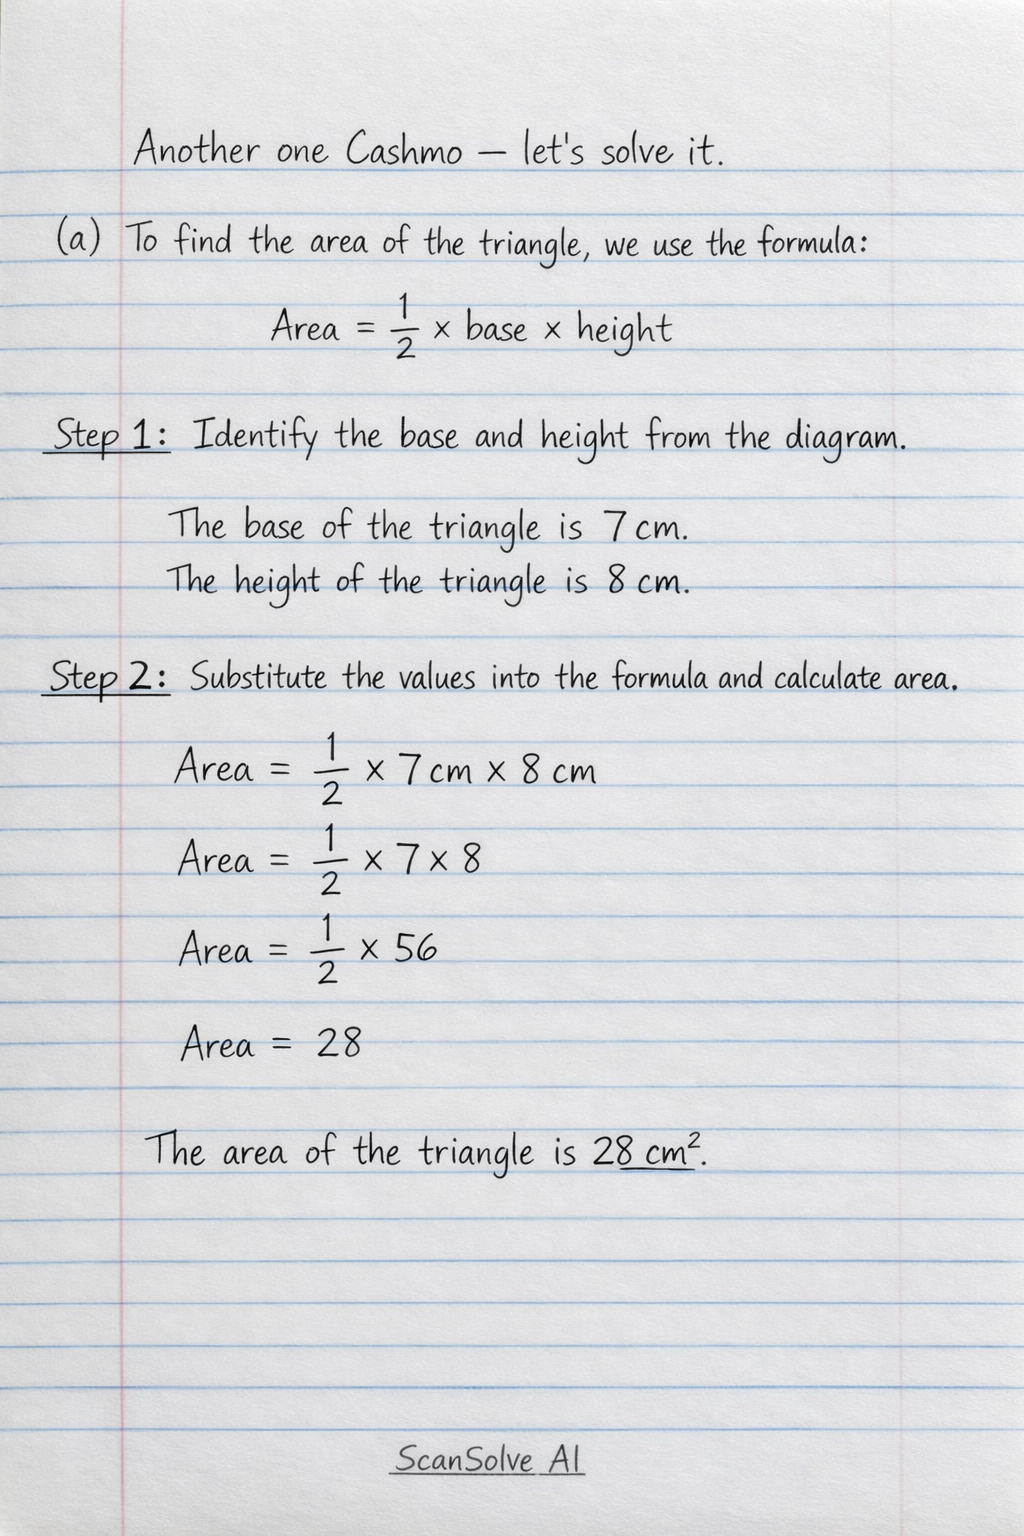 Another one Cashmo — let's solve it.
(a) To find the area of the triangle, we use the formula:
Area = 1/2 × base × height
Step 1: Identify the base and height from the diagram.
The base of the triangle is 7 cm.
The height of the triangle is 8 cm.
Step 2: Substitute the values into the formula and calculate area.
Area = 1/2 × 7 cm × 8 cm
Area = 1/2 × 7 × 8
Area = 1/2 × 56
Area = 28
The area of the triangle is 28 cm².
ScanSolve AI